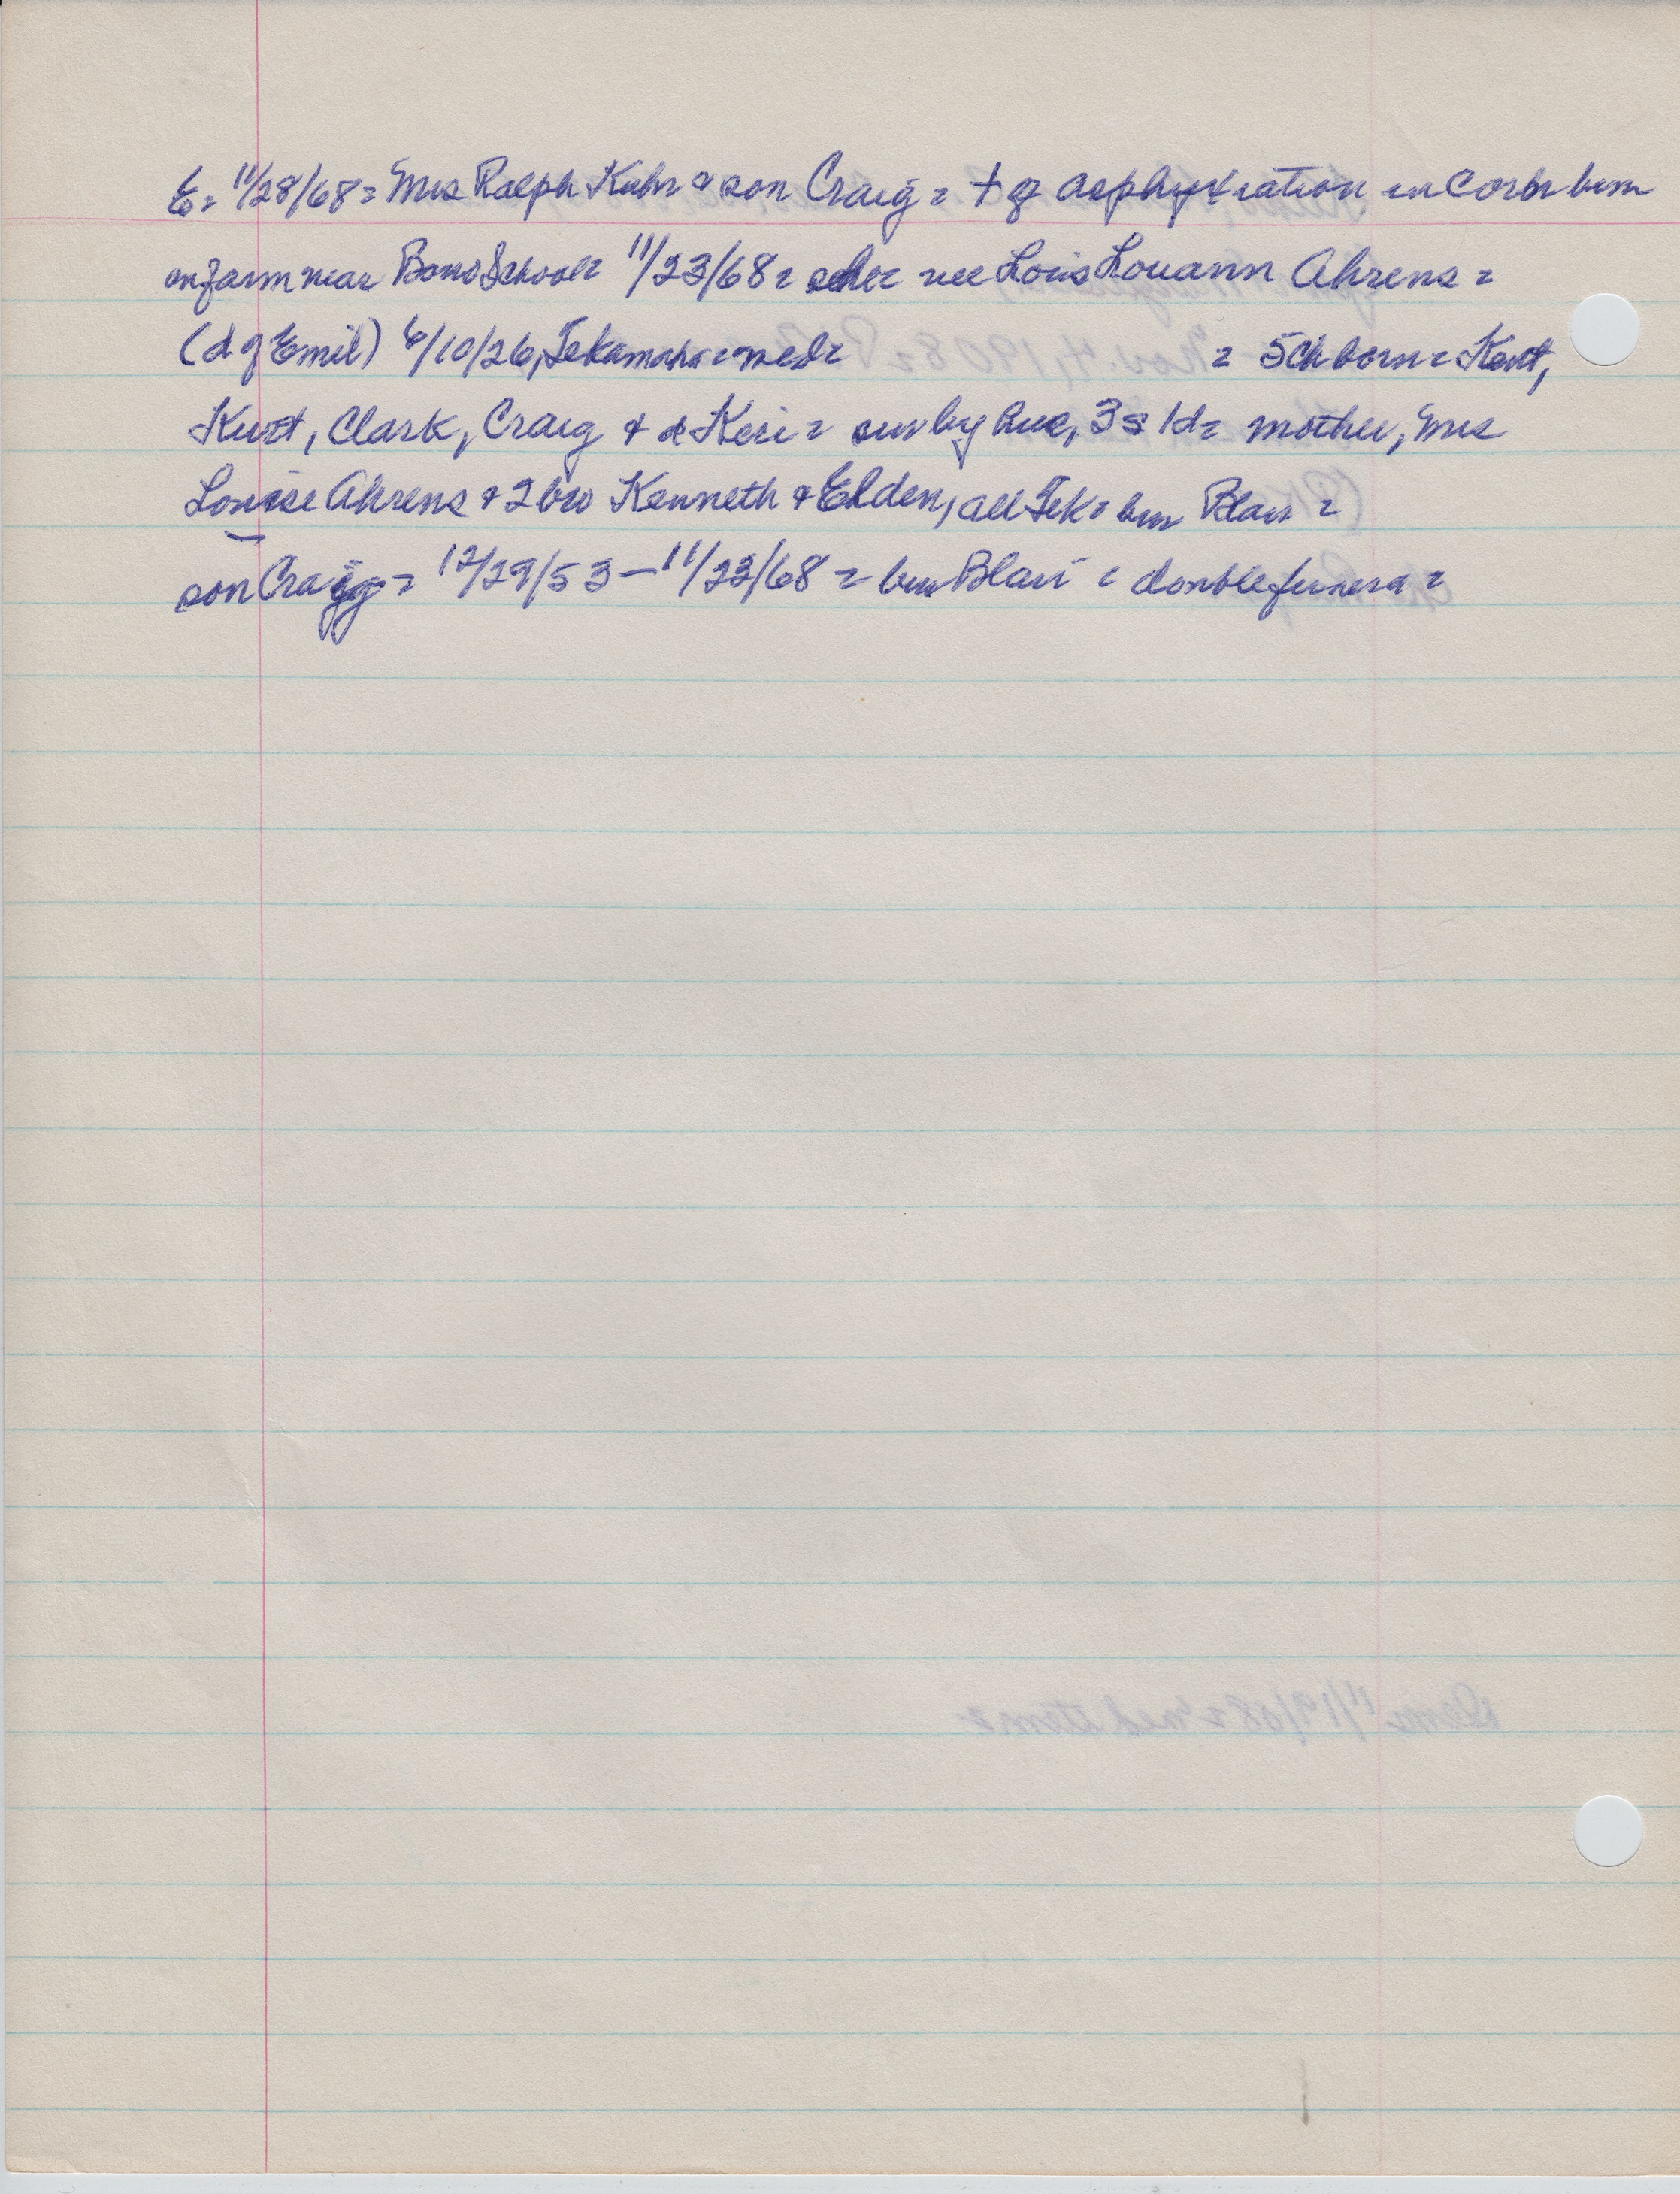 E = 11/28/68 = Mrs Ralph Kuhr & son Craig = + of asphyxiation in Corn bin
on farm near Bono School = 11/23/68 = she = nee Lois Louann Ahrens =
(d of Emil) 6/10/26, Tekamaha = med = = 5 ch born = Kent,
Kurt, Clark, Craig & d Keri = surv by hus, 3 s 1 d = mother, Mrs
Louise Ahrens & 2 bro Kenneth & Elden, all Tek = bur Blair =
son Craig = 12/29/53 — 11/23/68 = bur Blair = double funera =